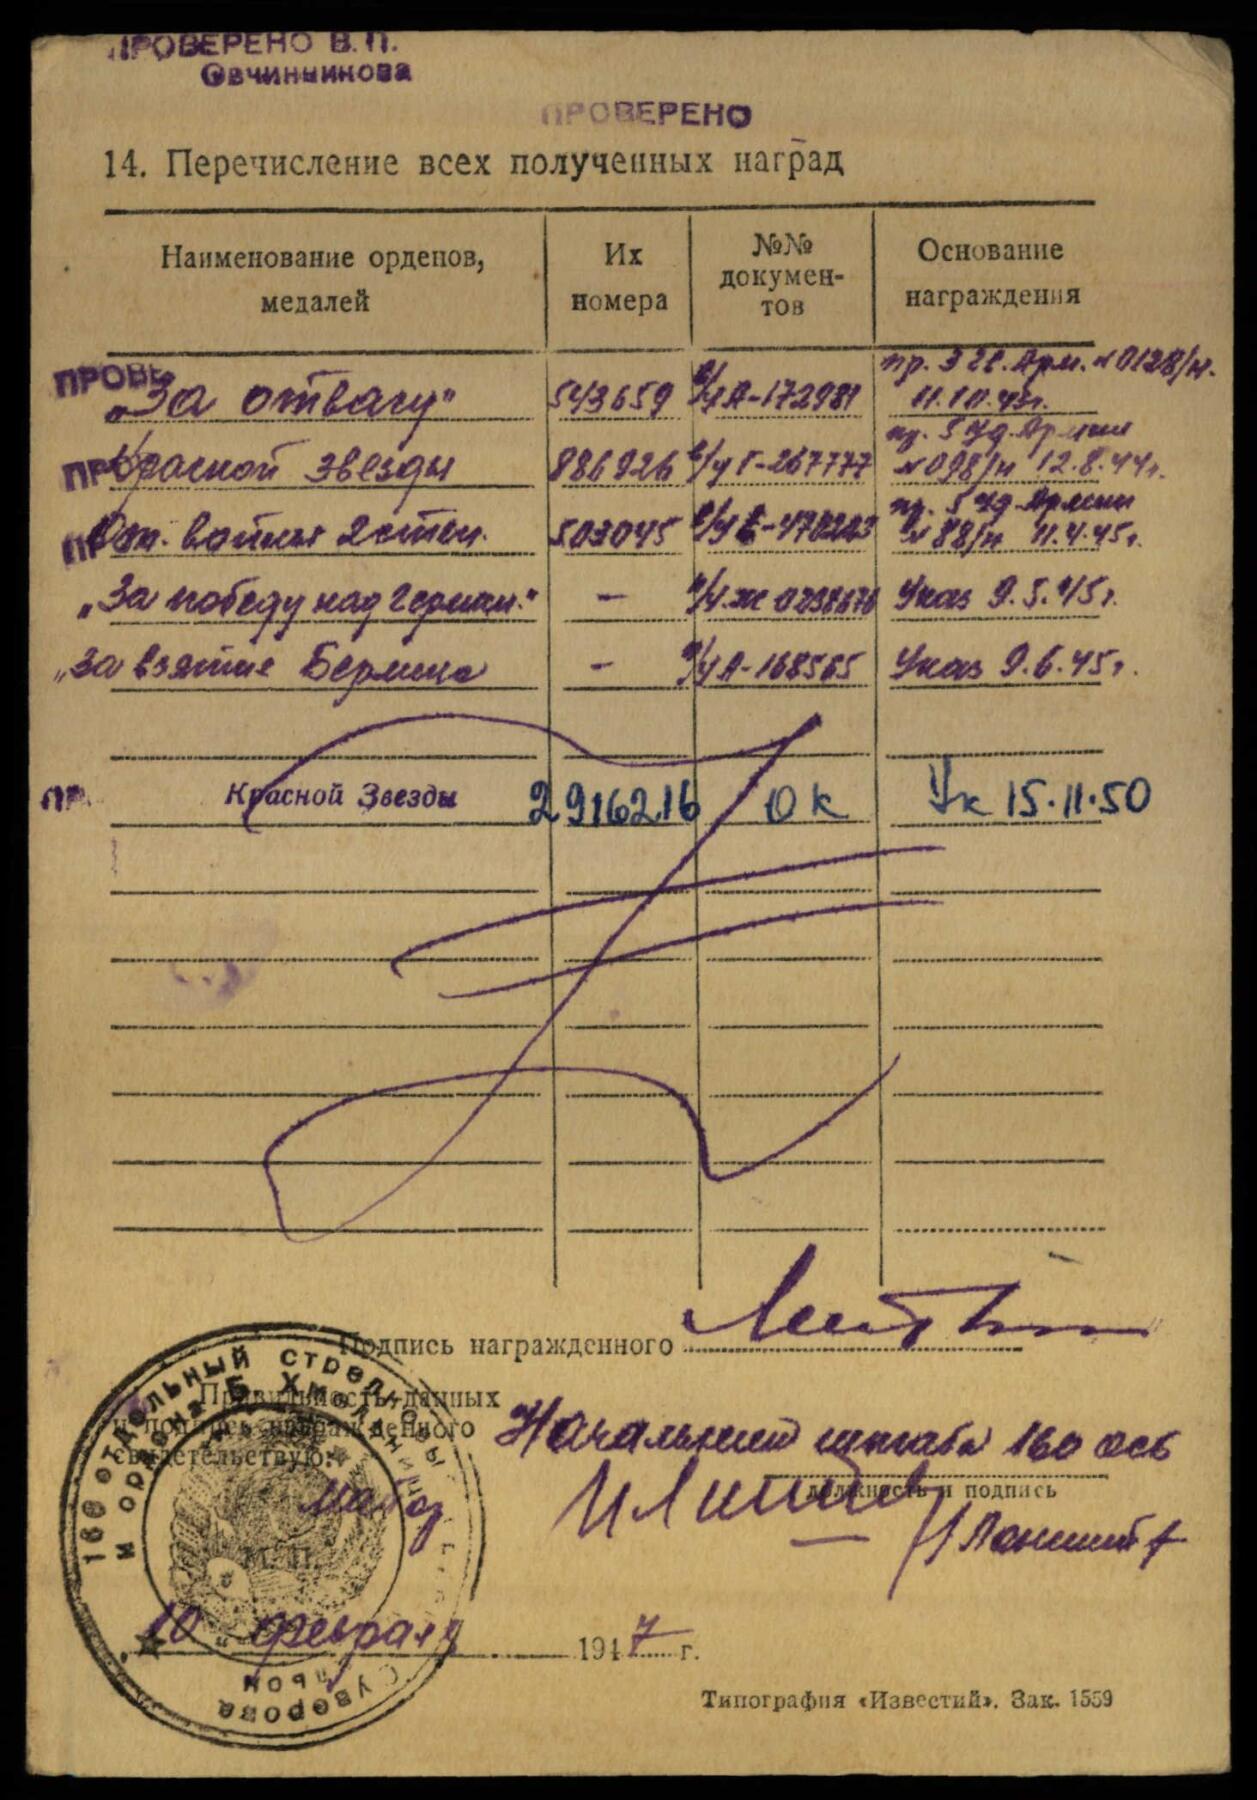 ПРОВЕРЕНО В. П.
Овчинникова
ПРОВЕРЕНО
14. Перечисление всех полученных наград
Наименование орденов, медалей
Их номера
№№ докумен-
тов
Основание награждения
ПРОВЕ
„За отвагу" 543659 в/у А-172981 пр. 3 Гв. Арм. №0128/н. 11.10.43г.
ПР
Красной звезды 886926 в/у Г-267777 пр. 5 Уд. Армии №098/н 12.8.44г.
ПР
От. войны 2 степ. 503045 пр. 5 Уд. Армии №88/н 11.4.45г.
„За победу над Герман." — Указ 9.5.45г.
„За взятие Берлина — в/у А-168565 Указ 9.6.45г.
ПР. Красной Звезды 2916216 ОК Ук 15.11.50
Подпись награжденного
Правильность данных
и подпись награжденного
свидетельствую:
Начальник штаба 160 осб
должность и подпись
майор
М. П.
160 отдельный стрелковый
и ордена Б. Хмельницк
Суворова
10 февраля 1947 г.
Типография «Известий». Зак. 1559